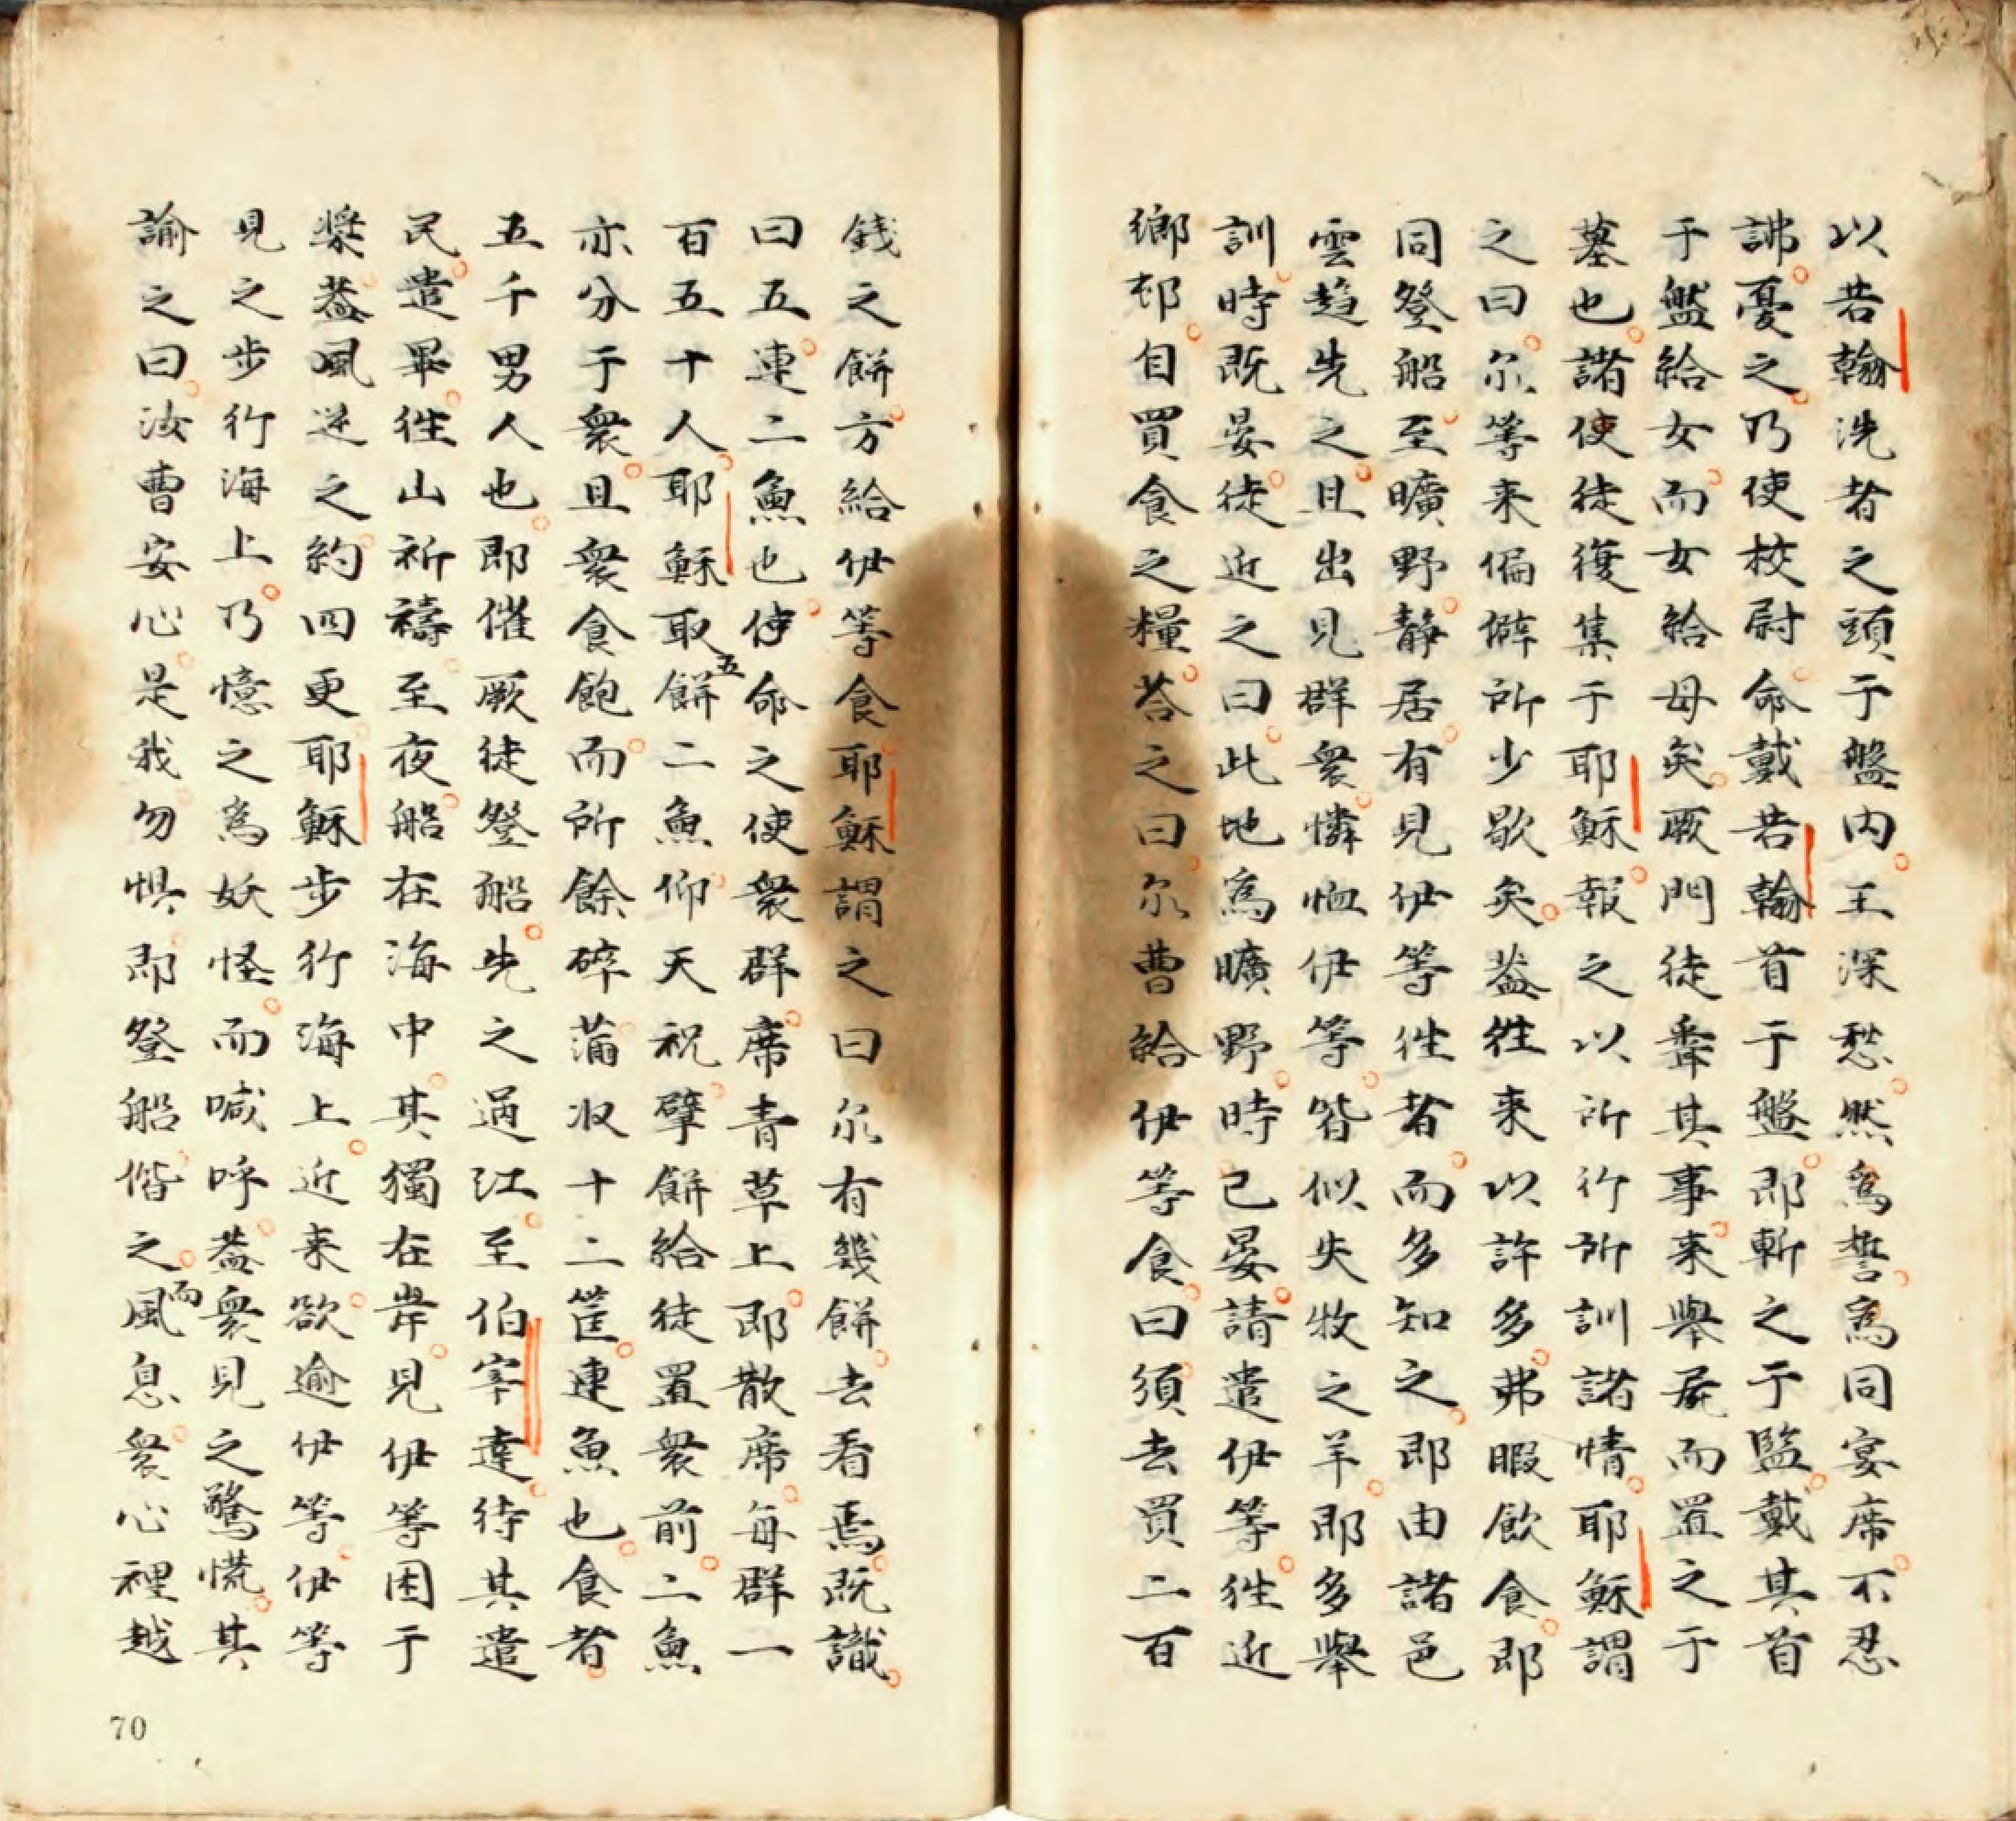 以若翰洗者之頭于盤内王深愁然爲誓爲同宴席不忍
誂憂之乃使校尉命戴若翰首于盤即斬之于監戴其首
于盤給女而女給母矣厥門徒聞其事来舉屍而置之于
墓也諸使徒復集于耶穌報之以所行所訓諸情耶穌謂
之曰尔等来偏僻所少歇矣葢徃来以許多弗暇飲食即
同登船至曠野靜居有見伊等徃者而多知之即由諸邑
雲趋先之且出見群衆憐恤伊等皆似失牧之羊即多舉
訓時既晏徒近之曰此地爲曠野時已晏請遣伊等徃近
鄉邨自買食之糧荅之曰尔曹給伊等食曰須去買二百
錢之餅方給伊等食耶穌謂之曰尔有幾餅去看焉既識
曰五連二魚也使命之使衆群席青草上即散席每群一
百五十人耶穌取五餅二魚仰天祝擘餅給徒置衆前二魚
亦分于衆且衆食飽而所餘碎蒲収十二筐連魚也食者
五千男人也即催厥徒登船先之過江至伯宰達待其遣
民遣畢徃山祈禱至夜船在海中其獨在岸見伊等困于
槳葢風逆之約四更耶穌步行海上近来欲逾伊等伊等
見之步行海上乃憶之爲妖怪而喊呼葢衆見之驚慌其
諭之曰汝曹安心是我勿惧即登船偕之而風息衆心裡越
70